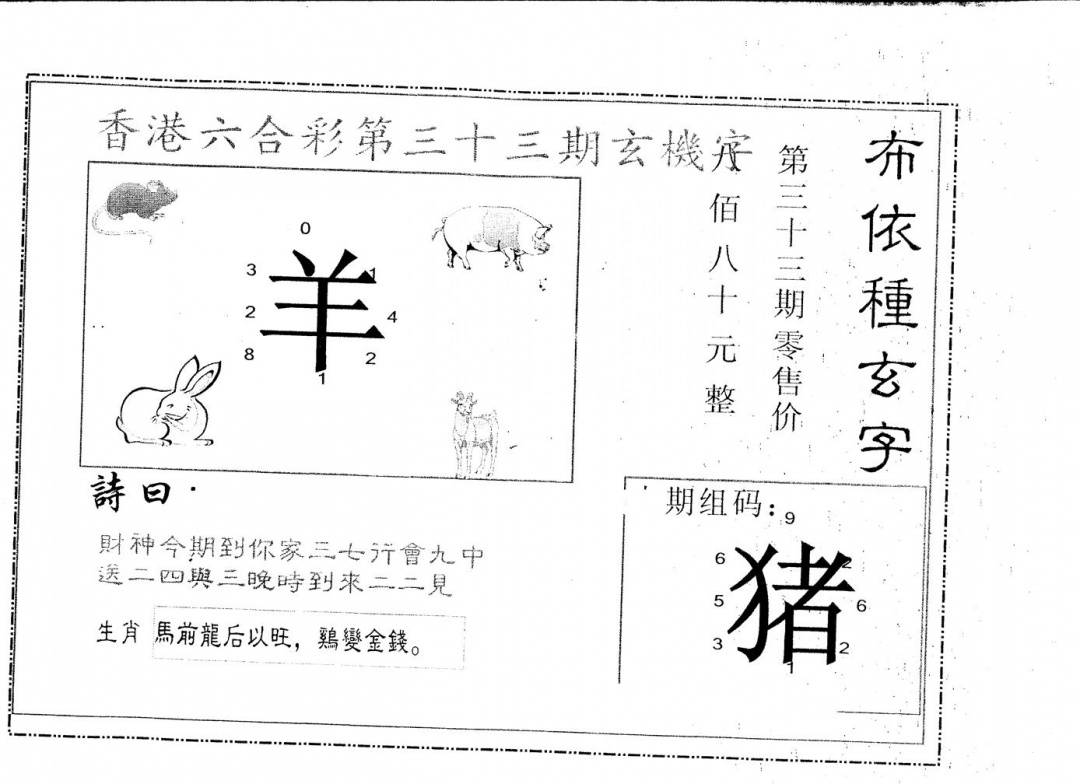 香港六合彩第三十三期玄機字
布依種玄字
第三十三期零售价
八佰八十元整
0
3
1
羊
2
4
8
2
1
詩曰
財神今期到你家三七行會九中
送二四與三晚時到來二二見
生肖 馬前龍后以旺，鷄變金錢。
期组码：
9
6
2
猪
5
6
3
2
1